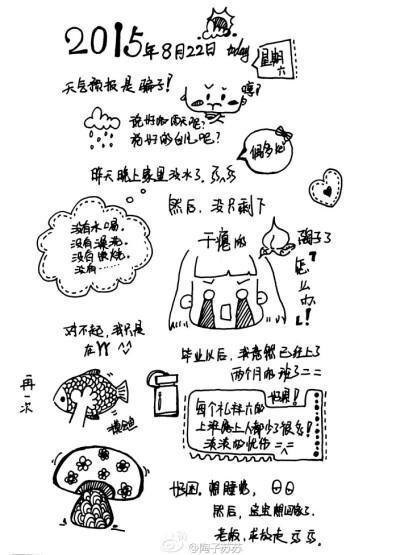 2015年8月22日 today
星期
六
天气预报是骗子!
哼!
说好的雨呢?
说好的白云呢?
偶多多
昨天晚上家里没水了.
然后,没只剩下
干瘪的
陶子了
怎
么
办
!
没有水喝.
没有澡洗.
没有
没有……
对不起,我只是
在YY
毕业以后,我竟然已经上了
两个月的班了==
再
一
次
摸鱼
好累!
每个礼拜六的
上班路上人都少了很多!
淡淡的忧伤=.=
好困.想睡觉,
然后,宝宝想回家了.
老板,求放走
@陶子苏苏